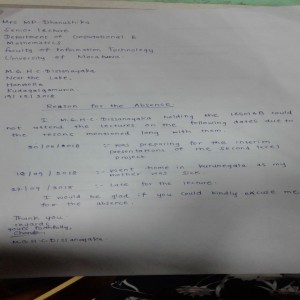 Mrs. M.P. Dhanushika
Senior Lecture
Department of Computational &
Mathematics
Faculty of Information Technology
University of Moratuwa
M.G.H.C. Dissanayake
Near the Lake,
Horakele
19/12/2018
Reason for the Absence
I M.G.H.C. Dissanayake holding the could
not attend the lectures on the following dates due to
the reasons mentioned long with them
:- was preparing for the interim
presentations of the second level
project
:- went home in as my
mother was sick
:- Late for the lecture
I would be glad if you could kindly excuse me
for the absence
Thank you
regards
faithfully,
M.G.H.C. Dissanayake